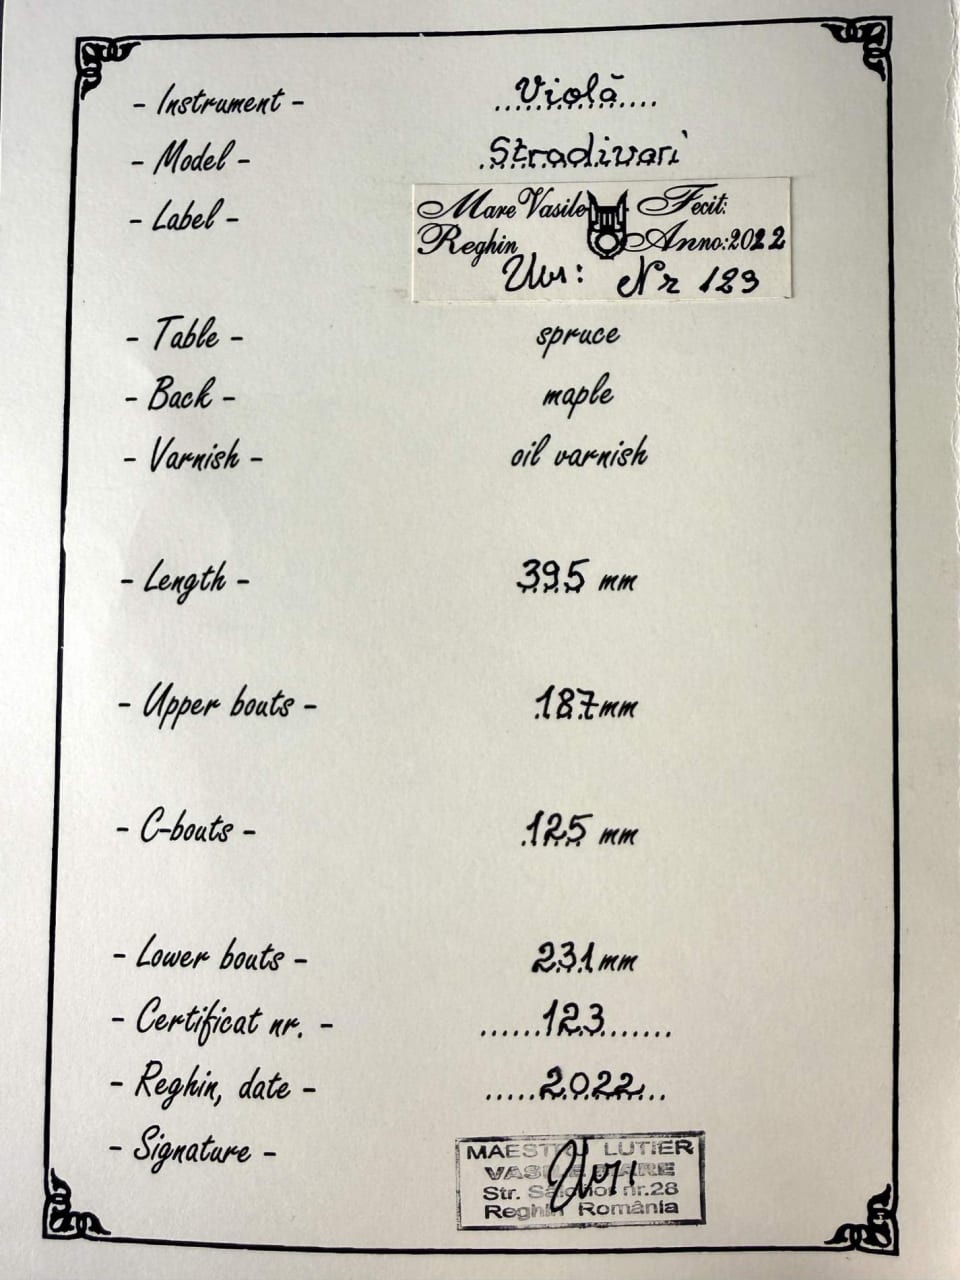 - Instrument - ....Violă....
- Model - Stradivari
- Label -
Mare Vasile Fecit:
Reghin Anno: 2022
Nr 123
- Table - spruce
- Back - maple
- Varnish - oil varnish
- Length - 395 mm
- Upper bouts - 187 mm
- C-bouts - 125 mm
- Lower bouts - 231 mm
- Certificat nr. - ......123.......
- Reghin, date - .....2022...
- Signature -
MAESTRU LUTIER
VASILE MARE
Str. Sălciilor nr.28
Reghin România